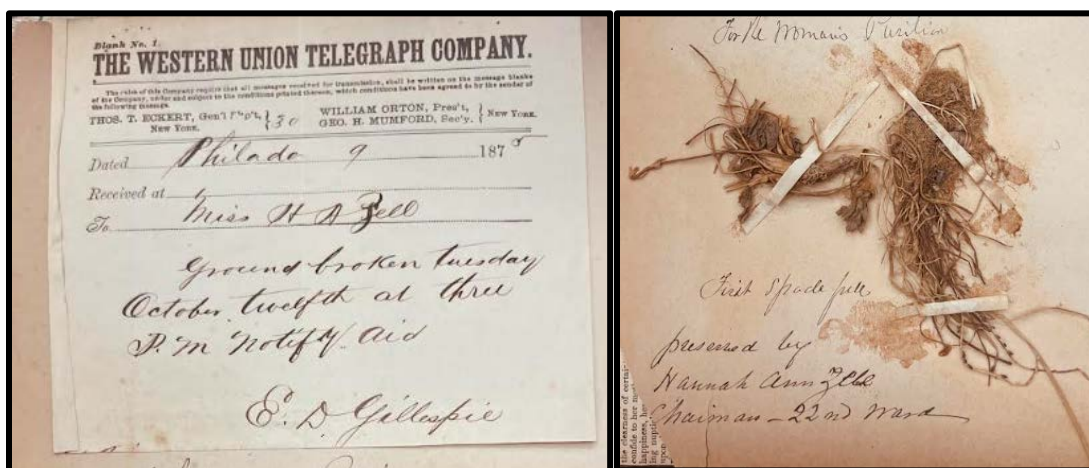 Blank No. 1.
THE WESTERN UNION TELEGRAPH COMPANY.
The rules of this Company require that all messages received for transmission, shall be written on the message blanks
of the Company, under and subject to the conditions printed thereon, which conditions have been agreed to by the sender of
the following message.
THOS. T. ECKERT, Gen'l Sup't, } 30 WILLIAM ORTON, Pres't, } NEW YORK.
NEW YORK. GEO. H. MUMFORD, Sec'y.
Dated Philada 9 1875
Received at
To Miss H A Zell
Ground broken tuesday
October twelfth at three
P. M Notify Aid
E. D Gillespie
For the Womans Pavilion
First spade full
preserved by
Hannah Ann Zell
Chairman - 22nd Ward
the clearness of certai-
confide to her
happiness,
ing
upon